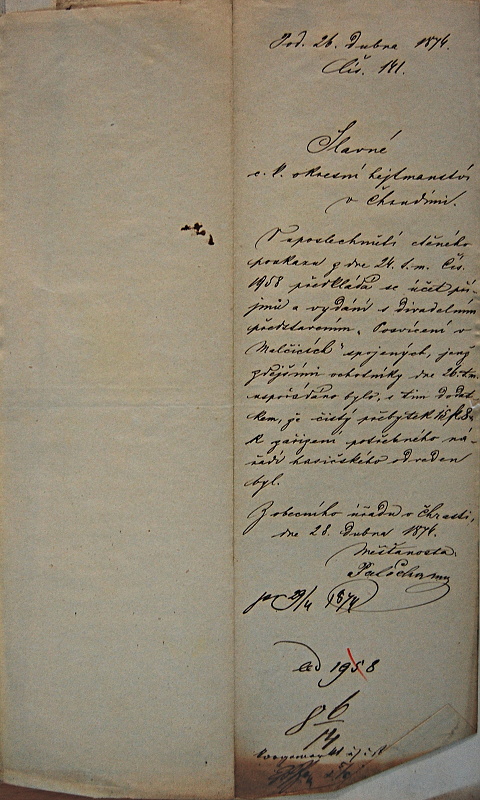 Pod. 26. dubna 1874.
Čís. 181.
Slavné
c. k. okresní hejtmanství
v Chrudimi.
V uposlechnutí ctěného
poukazu z dne 24. t. m. Čís.
1958 předkládá se účet pří-
jmů a vydání s divadelním
představením „Posvícení v
Malčicích" spojených, jenž
zdejšími ochotníky dne 26. t. m.
uspořádáno bylo, s tím dodat
kem, že čistý přebytek
k zařízení potřebného ná-
řadí hasičského odveden
byl.
Z obecního úřadu v Chrasti,
dne 28. dubna 1874.
Měšťanosta:
29/4 1874
ad 1958